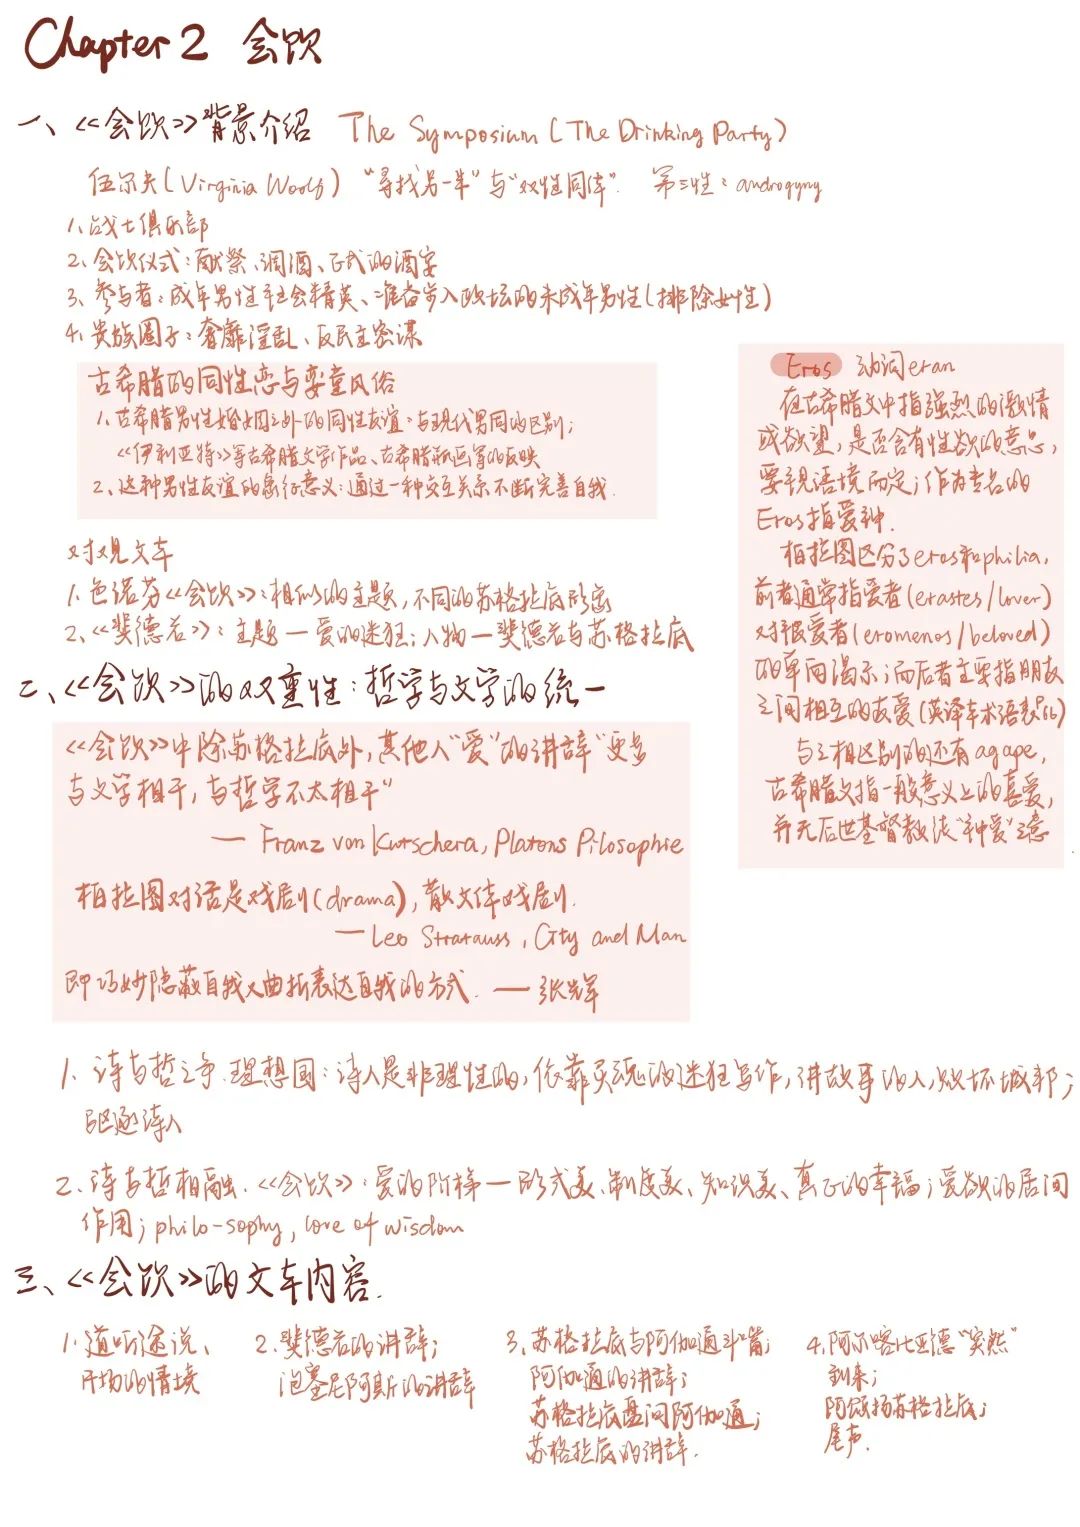 Chapter 2 会饮
一、《会饮》背景介绍 The Symposium (The Drinking Party)
伍尔夫(Virginia Woolf) “寻找另一半”与“双性同体”. 第三性：androgyny
1、战士俱乐部
2、会饮仪式：献祭、调酒、正式的酒宴
3、参与者：成年男性社会精英、准备步入政坛的未成年男性(排除女性)
4、贵族圈子：奢靡淫乱、反民主密谋
古希腊的同性恋与娈童风俗
1、古希腊男性婚姻之外的同性友谊：与现代男同的区别；
《伊利亚特》等古希腊文学作品、古希腊瓶画等的反映
2、这种男性友谊的象征意义：通过一种交互关系不断完善自我.
对观文本
1、色诺芬《会饮》：相似的主题，不同的苏格拉底形象
2、《斐德若》：主题—爱的迷狂；人物—斐德若与苏格拉底
Eros 动词eran
在古希腊文中指强烈的激情
或欲望，是否含有性欲的意思，
要视语境而定；作为专名的
Eros指爱神.
柏拉图区分了eros和philia，
前者通常指爱者(erastes/lover)
对被爱者(eromenos/beloved)
的单向渴求；而后者主要指朋友
之间相互的友爱(英译本术语表P66)
与之相区别的还有agape，
古希腊文指一般意义上的喜爱，
并无后世基督教徒“神爱”之意
二、《会饮》的双重性：哲学与文学的统一
《会饮》中除苏格拉底外，其他人“爱”的讲辞“更多
与文学相干，与哲学不太相干”
— Franz von Kutschera, Platons Pilosophie
柏拉图对话是戏剧(drama)，散文体戏剧.
—Leo Stratauss, City and Man
即巧妙隐蔽自我又曲折表达自我的方式. —张辉
1、诗与哲之争.理想国：诗人是非理性的，依靠灵魂的迷狂写作，讲故事的人，败坏城邦；
驱逐诗人
2、诗与哲相融.《会饮》：爱的阶梯—形式美、制度美、知识美、真正的幸福；爱欲的居间
作用；philo-sophy, love of wisdom
三、《会饮》的文本内容.
1、道听途说、
开场的情境
2、斐德若的讲辞；
泡塞尼阿斯的讲辞
3、苏格拉底与阿伽通斗嘴；
阿伽通的讲辞；
苏格拉底盘问阿伽通；
苏格拉底的讲辞.
4、阿尔喀比亚德“突然”
到来；
阿颂扬苏格拉底；
尾声.